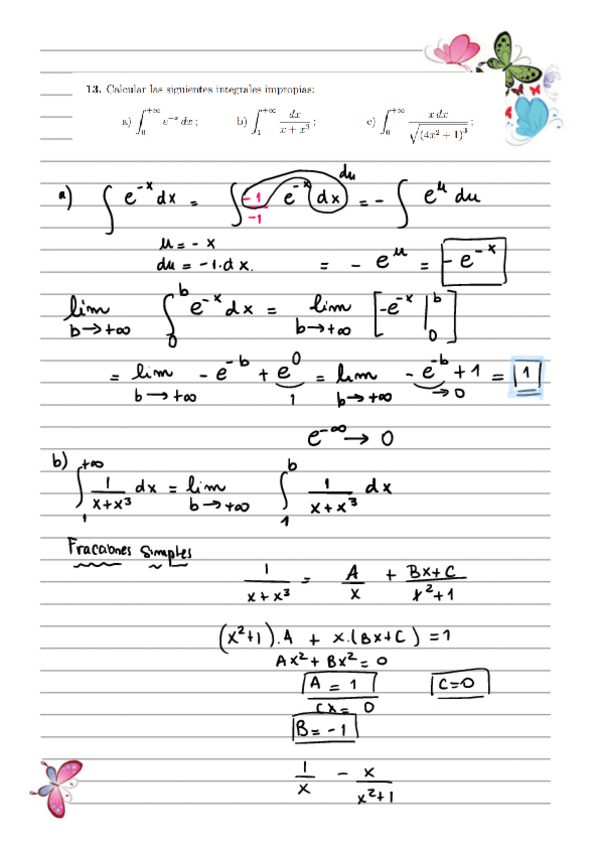 13. Calcular las siguientes integrales impropias:
a) ∫₀^{+∞} e^{-x} dx ; b) ∫₁^{+∞} dx/(x + x³) ; c) ∫₀^{+∞} x dx/√(4x² + 1)³ ;
a) ∫ e^{-x} dx = ∫ -1/-1 e^{-x} dx = - ∫ e^u du
du
u = - x
du = -1·dx. = - e^u = - e^{-x}
lim b→+∞ ∫₀^b e^{-x} dx = lim b→+∞ [-e^{-x} |₀^b]
= lim b→+∞ - e^{-b} + e^0 = lim b→+∞ - e^{-b} + 1 = 1
1 → 0
e^{-∞} → 0
b) ∫₁^{+∞} 1/(x+x³) dx = lim b→+∞ ∫₁^b 1/(x+x³) dx
Fracciones Simples
1/(x+x³) = A/x + (Bx+C)/(x²+1)
(x²+1).A + x.(Bx+C) = 1
Ax² + Bx² = 0
A = 1 C=0
Cx = 0
B = -1
1/x - x/(x²+1)